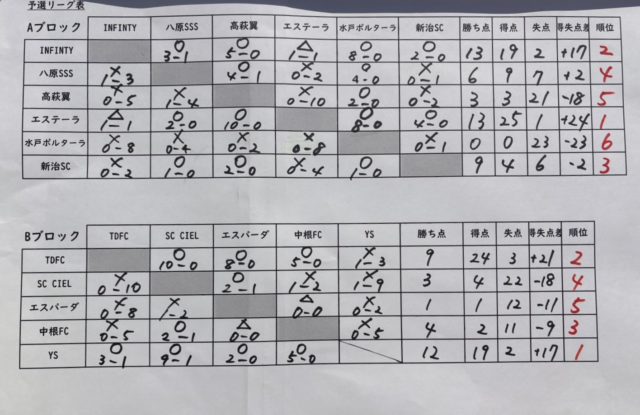 予選リーグ表
Aブロック INFINTY 八原SSS 高萩翼 エステーラ 水戸ボルターラ 新治SC 勝ち点 得点 失点 得失点差 順位
INFINTY ○ 3-1 ○ 5-0 △ 1-1 ○ 8-0 ○ 2-0 13 19 2 +17 2
八原SSS × 1-3 ○ 4-1 × 0-2 ○ 4-0 × 0-1 6 9 7 +2 4
高萩翼 × 0-5 × 1-4 × 0-10 ○ 2-0 × 0-2 3 3 21 -18 5
エステーラ △ 1-1 ○ 2-0 ○ 10-0 ○ 8-0 ○ 4-0 13 25 1 +24 1
水戸ボルターラ × 0-8 × 0-4 × 0-2 × 0-8 × 0-1 0 0 23 -23 6
新治SC × 0-2 ○ 1-0 ○ 2-0 × 0-4 ○ 1-0 9 4 6 -2 3
Bブロック TDFC SC CIEL エスパーダ 中根FC YS 勝ち点 得点 失点 得失点差 順位
TDFC ○ 10-0 ○ 8-0 ○ 5-0 × 1-3 9 24 3 +21 2
SC CIEL × 0-10 ○ 2-1 × 1-2 × 1-9 3 4 22 -18 4
エスパーダ × 0-8 × 1-2 △ 0-0 × 0-2 1 1 12 -11 5
中根FC × 0-5 ○ 2-1 △ 0-0 × 0-5 4 2 11 -9 3
YS ○ 3-1 ○ 9-1 ○ 2-0 ○ 5-0 12 19 2 +17 1